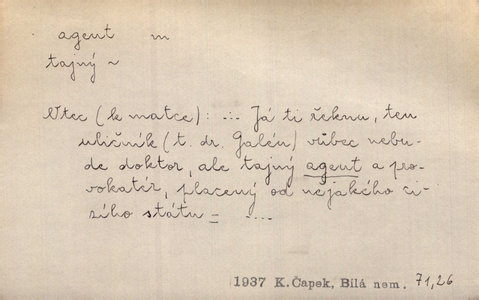 agent m
tajný ~
Otec (k matce): ... Já ti řeknu, ten
uličník (t. dr. Galén) vůbec nebu-
de doktor, ale tajný agent a pro-
vokatér, placený od nějakého ci-
zího státu = ....
1937 K.Čapek, Bílá nem. 71,26